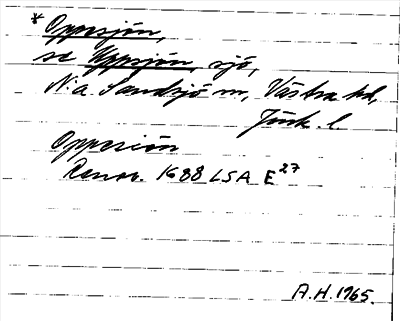 * Oppesjön,
se Uppsjön, sjö,
N:a Sandsjö sn, Västra hd,
Jönk. l.
Oppesiön
Ranov. 1688 LSA E27
A.H. 1965.